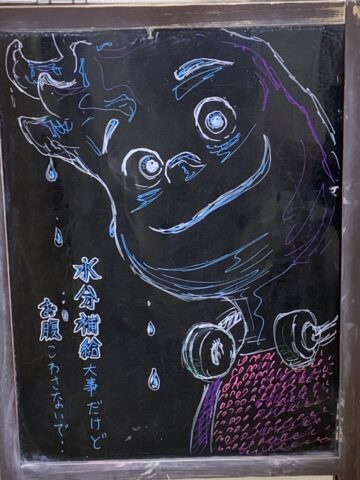 水分補給大事だけど
…お腹こわさないで…